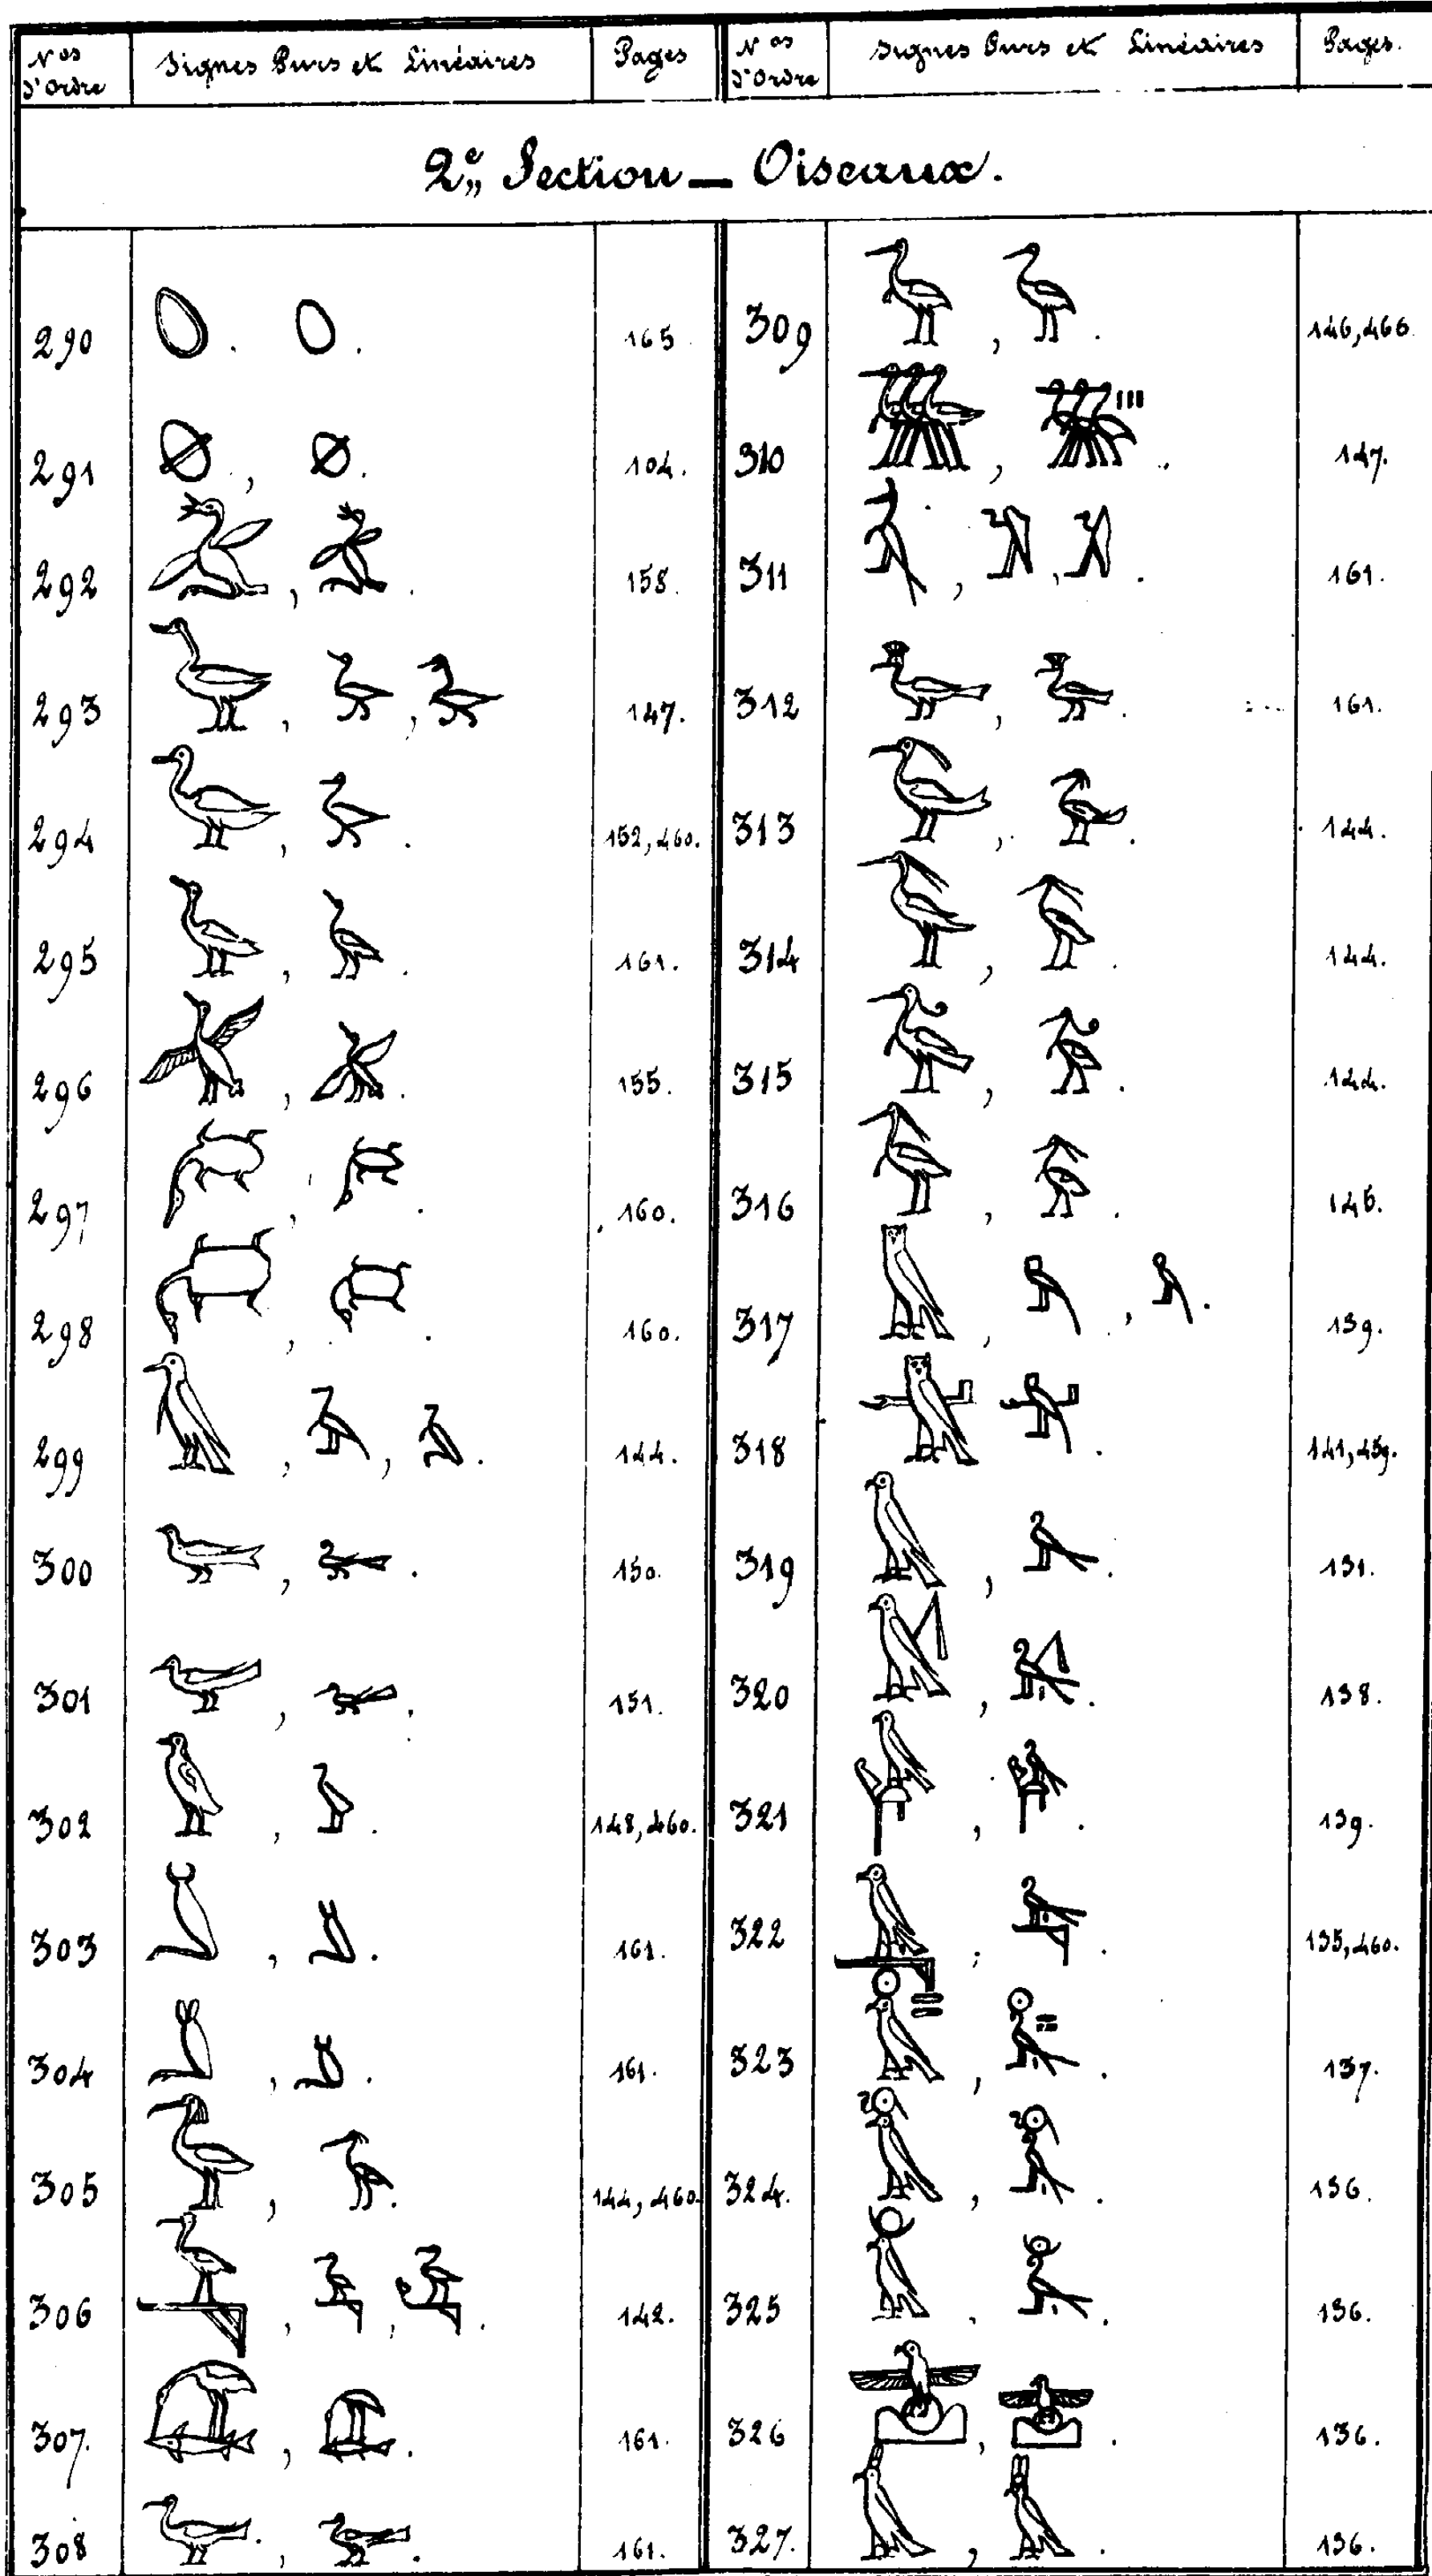 Nos d'Ordre Signes Purs et Linéaires Pages Nos d'Ordre Signes Purs et Linéaires Pages.
2e Section — Oiseaux.
290 165 309 146,466.
291 104. 310 147.
292 158. 311 161.
293 147. 312 161.
294 152,460. 313 144.
295 161. 314 144.
296 155. 315 144.
297 160. 316 145.
298 160. 317 139.
299 144. 318 141,459.
300 150. 319 131.
301 151. 320 138.
302 148,460. 321 139.
303 161. 322 135,460.
304 161. 323 137.
305 144,460. 324. 136.
306 142. 325 136.
307. 161. 326 136.
308 161. 327. 136.